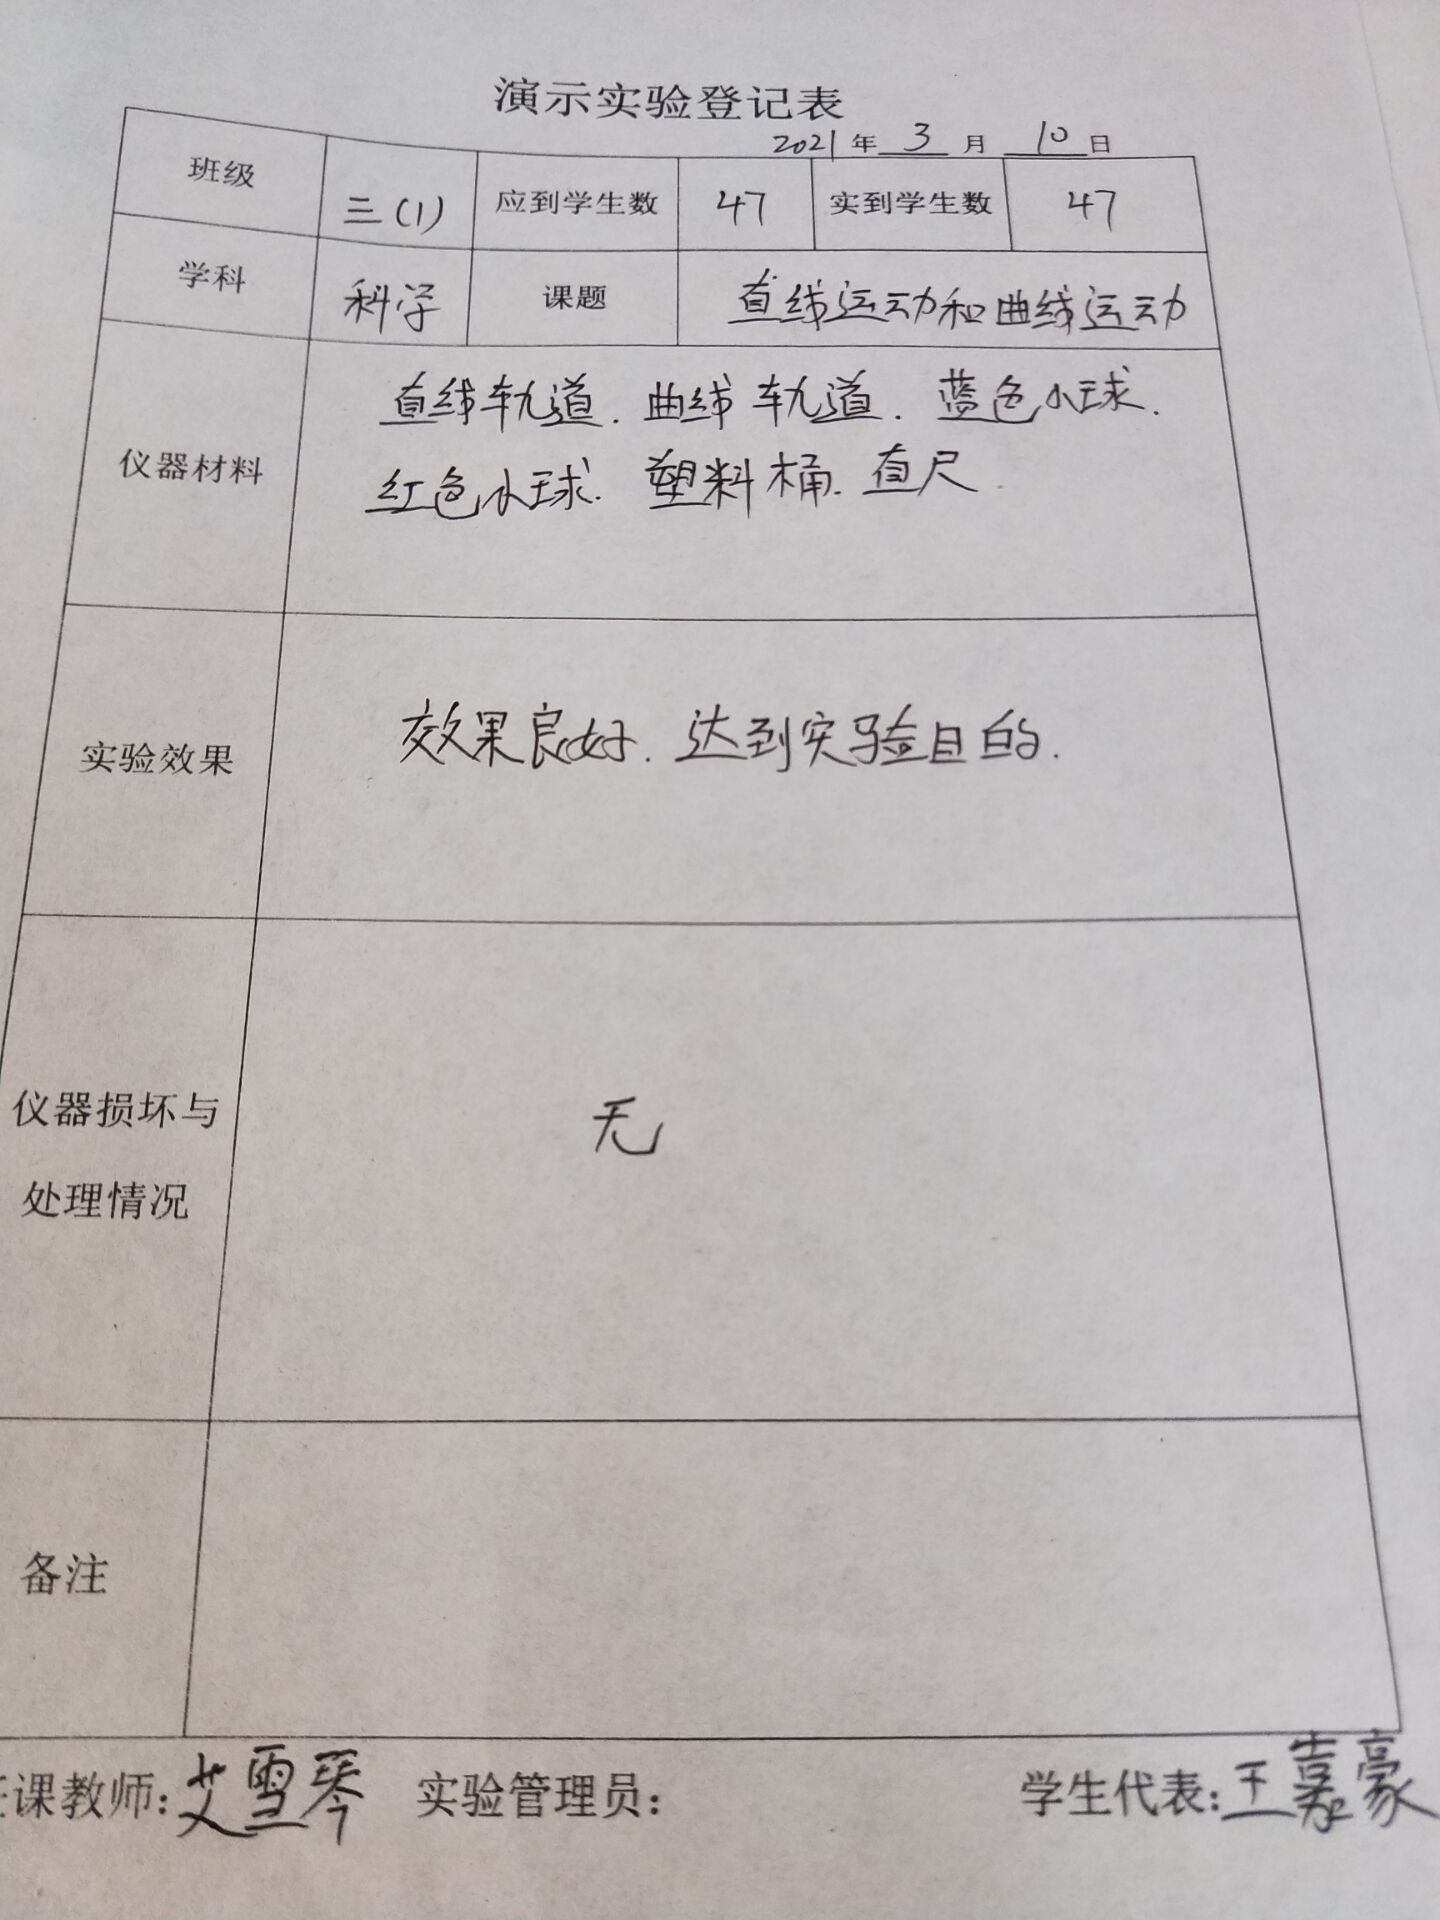 演示实验登记表
2021年 3 月 10 日
班级 三(1) 应到学生数 47 实到学生数 47
学科 科学 课题 直线运动和曲线运动
仪器材料 直线轨道.曲线轨道.蓝色小球.
红色小球.塑料桶.直尺.
实验效果 效果良好.达到实验目的.
仪器损坏与
处理情况
无
备注
课教师:艾雪琴 实验管理员: 学生代表:王嘉豪